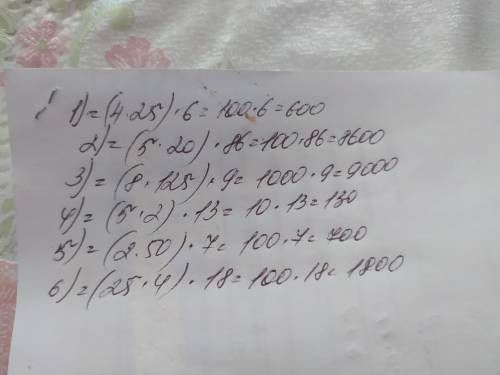 1) = (4·25)·6 = 100·6 = 600
2) = (5·20)·86 = 100·86 = 8600
3) = (8·125)·9 = 1000·9 = 9000
4) = (5·2)·13 = 10·13 = 130
5) = (2·50)·7 = 100·7 = 700
6) = (25·4)·18 = 100·18 = 1800